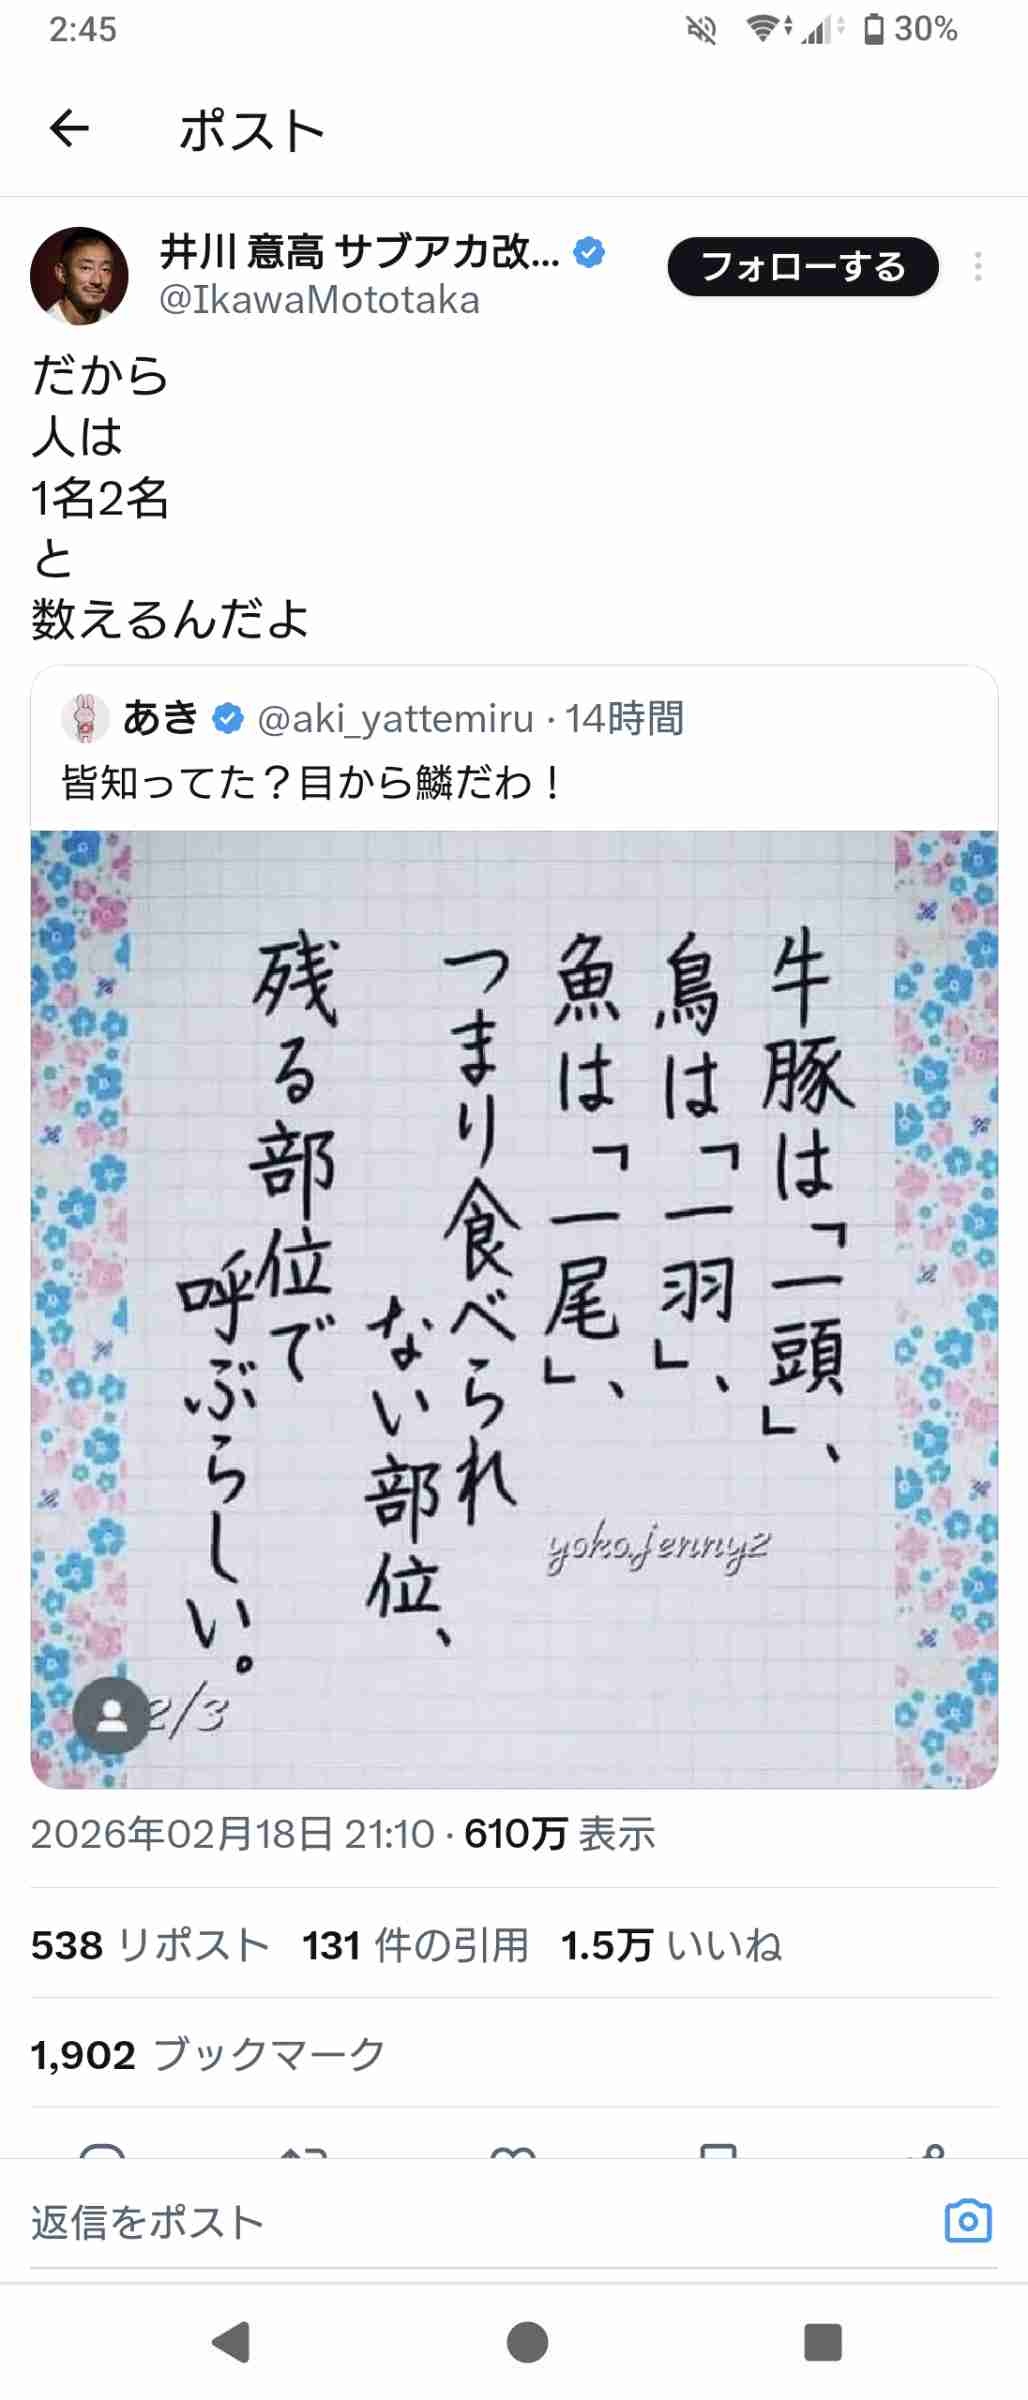 2:45
30%
ポスト
井川 意高 サブアカ改...
フォローする
@IkawaMototaka
だから
人は
1名2名
と
数えるんだよ
あき @aki_yattemiru · 14時間
皆知ってた？目から鱗だわ！
牛豚は「一頭」、
鳥は「一羽」、
魚は「一尾」、
つまり食べられ
ない部位、
残る部位で
呼ぶらしい。
yoko.jenny2
2/3
2026年02月18日 21:10 · 610万 表示
538 リポスト 131 件の引用 1.5万 いいね
1,902 ブックマーク
返信をポスト